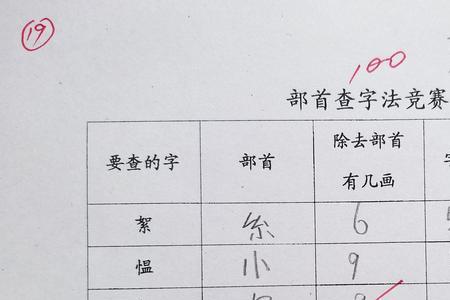 19
100
部首查字法竞赛
要查的字 部首 除去部首有几画
絮 糸 6
愠 忄 9